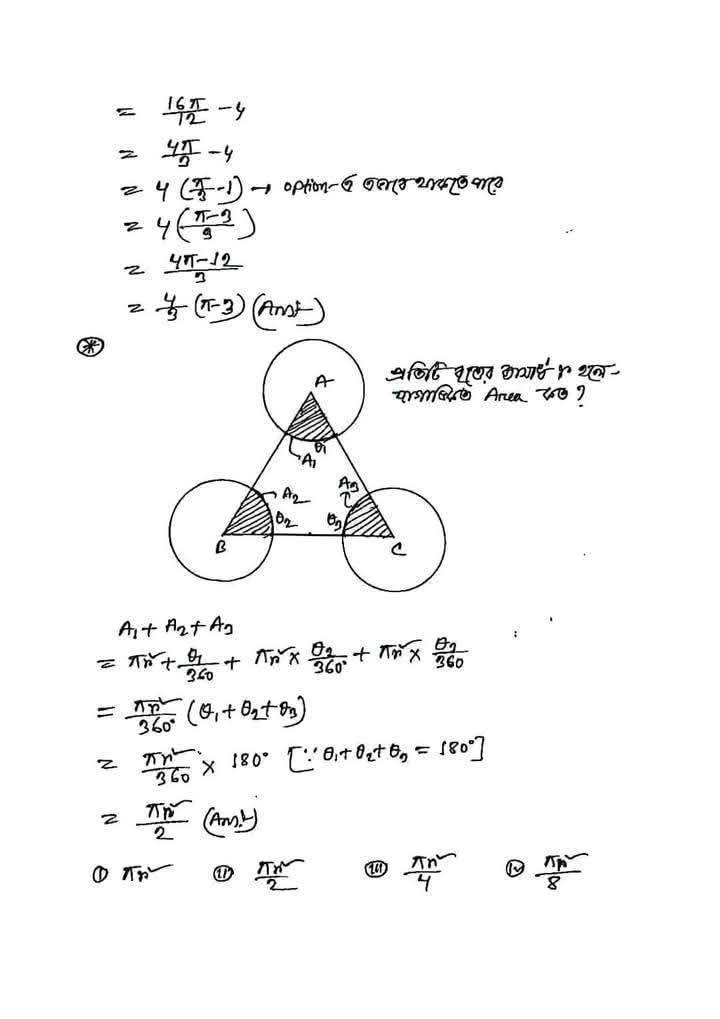 = 16π/12 - 4
= 4π/3 - 4
= 4 (π/3 - 1) → option-এ এভাবে থাকতে পারে
= 4 (π-3/3)
= 4π-12/3
= 4/3 (π-3) (Ans:)
* প্রতিটি বৃত্তের ব্যাসার্ধ r হলে-
দাগাঙ্কিত Area কত?
A
θ1
A1
A2
θ2
B
A3
θ3
C
A1 + A2 + A3
= πr² + θ1/360 + πr² × θ2/360° + πr² × θ3/360
= πr²/360° (θ1 + θ2 + θ3)
= πr²/360 × 180° [∵ θ1 + θ2 + θ3 = 180°]
= πr²/2 (Ans:)
(i) πr² (ii) πr²/2 (iii) πr²/4 (iv) πr²/8